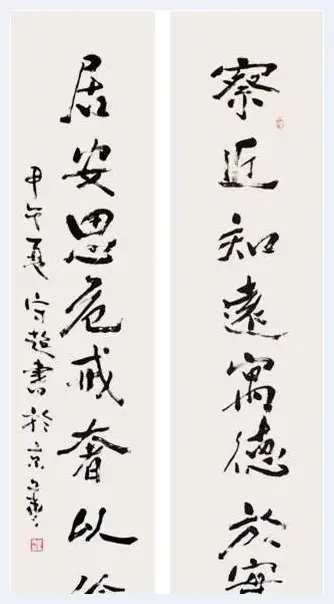 察近知遠寓德於
居安思危戒奢以
甲午夏守超書於京華